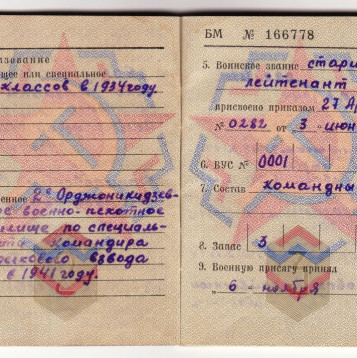 разование
щее или специальное
классов в 1934 году
енное 2е Орджоникидзев-
ое военно-пехотное
илище по специаль-
командира
взвода
в 1941 году.
БМ № 166778
5. Воинское звание стар
лейтенант
присвоено приказом 27 Ар
№ 0282 от 3 июн
6. ВУС № 0001
7. Состав Командны
8. Запас 3
9. Военную присягу принял
6 - ноября